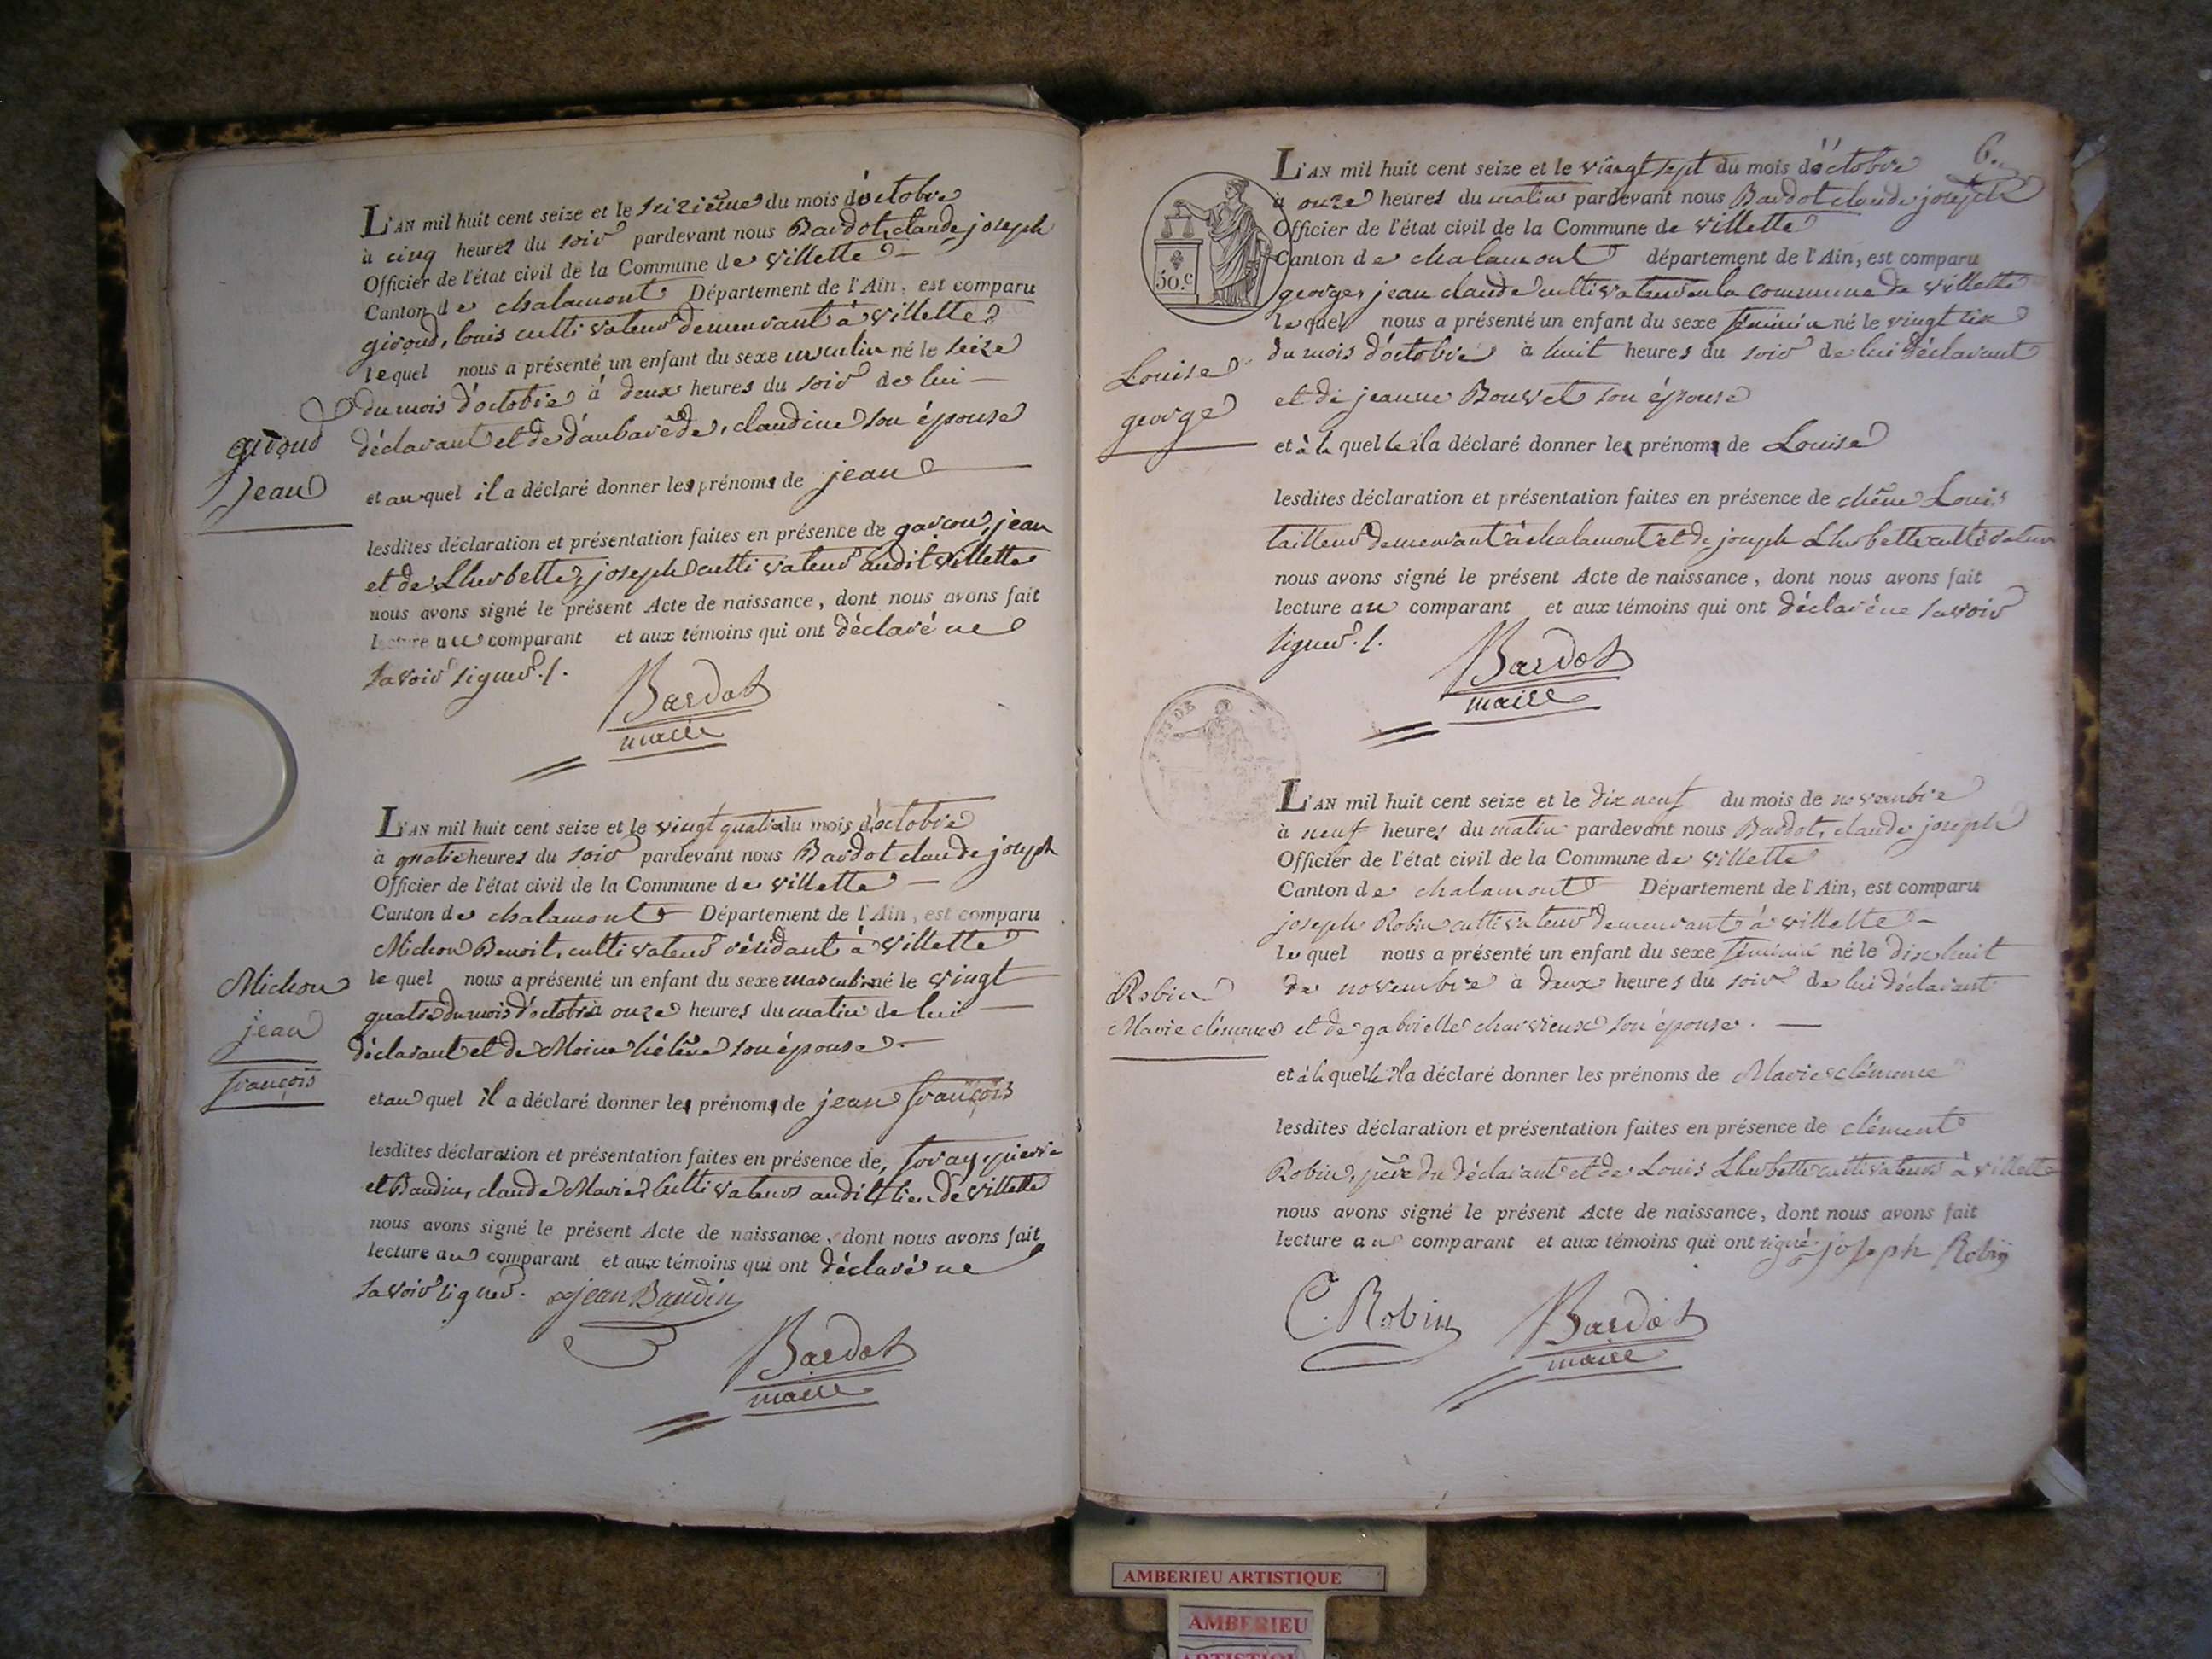 L'AN mil huit cent seize et le seizième du mois d'octobre
à cinq heures du soir pardevant nous Bardot, claude joseph
Officier de l'état civil de la Commune de villette
Canton de chalamont Département de l'Ain, est comparu
giroud, louis cultivateur demeurant à villette
lequel nous a présenté un enfant du sexe masculin né le seize
du mois d'octobre à deux heures du soir de lui
giroud
déclarant et de claudine son épouse
jean
et au quel il a déclaré donner les prénoms de jean
lesdites déclaration et présentation faites en présence de garcon, jean
et de Lherbette, joseph cultivateur audit villette
nous avons signé le présent Acte de naissance, dont nous avons fait
lecture au comparant et aux témoins qui ont déclaré ne
savoir signer ./.
Bardot
maire
L'AN mil huit cent seize et le vingt quatre du mois d'octobre
à quatre heures du soir pardevant nous Bardot claude joseph
Officier de l'état civil de la Commune de villette
Canton de chalamont Département de l'Ain, est comparu
Michon Benoit, cultivateur résidant à villette
Michon
le quel nous a présenté un enfant du sexe masculin né le vingt
quatre du mois d'octobre à onze heures du matin de lui
jean
déclarant et de Moine hélène son épouse
françois
et au quel il a déclaré donner les prénoms de jean françois
lesdites déclaration et présentation faites en présence de, foray pierre
et Baudin, claude Marie, cultivateurs audit lieu de villette
nous avons signé le présent Acte de naissance, dont nous avons fait
lecture au comparant et aux témoins qui ont déclaré ne
savoir signer. jean Baudin
Bardot
maire
6.
L'AN mil huit cent seize et le vingt sept du mois d'octobre
à onze heures du matin pardevant nous Bardot claude joseph
Officier de l'état civil de la Commune de villette
Canton de chalamont département de l'Ain, est comparu
50.c
george, jean claude cultivateur en la commune de villette
lequel nous a présenté un enfant du sexe féminin né le vingt six
du mois d'octobre à huit heures du soir de lui déclarant
Louise
et de jeanne Bouvet son épouse
george
et à la quelle il a déclaré donner les prénoms de Louise
lesdites déclaration et présentation faites en présence de chêne Louis
tailleur demeurant à chalamont et de joseph Lherbette cultivateur
nous avons signé le présent Acte de naissance, dont nous avons fait
lecture au comparant et aux témoins qui ont déclaré ne savoir
signer ./.
Bardot
maire
L'AN mil huit cent seize et le dix neuf du mois de novembre
à neuf heures du matin pardevant nous Bardot, claude joseph
Officier de l'état civil de la Commune de villette
Canton de chalamont Département de l'Ain, est comparu
joseph Robin cultivateur demeurant à villette
lequel nous a présenté un enfant du sexe féminin né le dix huit
Robin
de novembre à deux heures du soir de lui déclarant
Marie clémence
et de gabrielle charvieux son épouse.
et à la quelle il a déclaré donner les prénoms de Marie clémence
lesdites déclaration et présentation faites en présence de clément
Robin, père du déclarant et de Louis Lherbette cultivateurs à villette
nous avons signé le présent Acte de naissance, dont nous avons fait
lecture au comparant et aux témoins qui ont signé. joseph Robin
C. Robin
Bardot
maire
AMBERIEU ARTISTIQUE
AMBERIEU
ARTISTIQUE